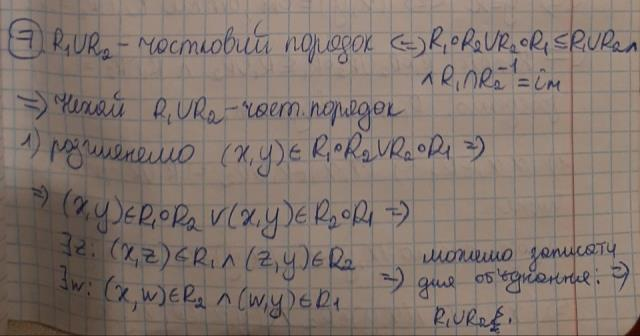 ⑦ R₁∪R₂ - частковий порядок <=> R₁∘R₂∪R₂∘R₁ ⊆ R₁∪R₂ ∧
∧ R₁∩R₂⁻¹ = iм
=> Нехай R₁∪R₂ - част. порядок
1) розглянемо (x,y) ∈ R₁∘R₂∪R₂∘R₁ =>
=> (x,y) ∈ R₁∘R₂ ∨ (x,y) ∈ R₂∘R₁ =>
∃z: (x,z) ∈ R₁ ∧ (z,y) ∈ R₂
∃w: (x,w) ∈ R₂ ∧ (w,y) ∈ R₁
=> можемо записати
для об'єднання: =>
R₁∪R₂